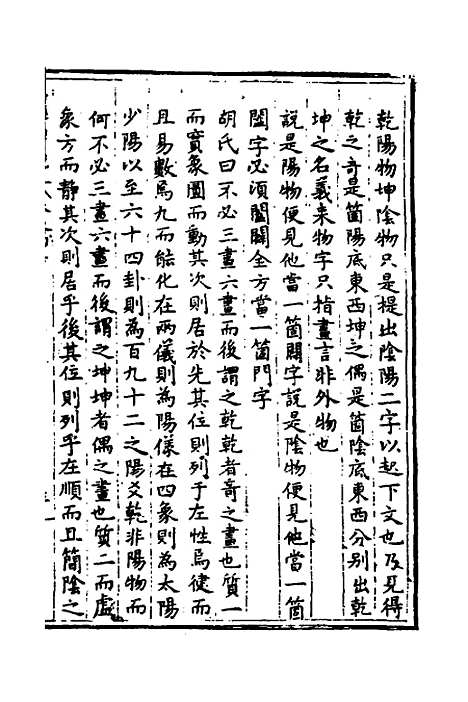 乾陽物坤陰物只是提出陰陽二字以起下文也及見得
乾之奇是箇陽底東西坤之偶是箇陰底東西分別出乾
坤之名義来物字只指畫言非外物也
說是陽物便見他當一箇闢字說是陰物便見他當一箇
闔字必須闔闢全方當一箇門字
胡氏曰不必三畫六畫而後謂之乾乾者竒之畫也質一
而實象圓而動其次則居於先其位則列于左性為健而
且易數為九而能化在兩儀則為陽儀在四象則為太陽
少陽以至六十四卦則為百九十二之陽爻乾非陽物而
何不必三畫六畫而後謂之坤坤者偶之畫也質二而虛
象方而静其次則居乎後其位則列乎右順而且簡陰之